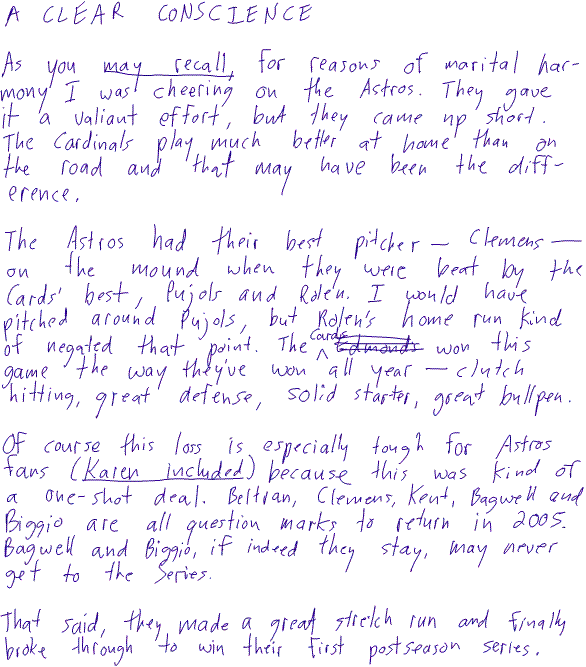 A CLEAR CONSCIENCE
As you may recall, for reasons of marital har-
mony I was cheering on the Astros. They gave
it a valiant effort, but they came up short.
The Cardinals play much better at home than on
the road and that may have been the diff-
erence.
The Astros had their best pitcher — Clemens —
on the mound when they were beat by the
Cards' best, Pujols and Rolen. I would have
pitched around Pujols, but Rolen's home run kind
of negated that point. The Cards Edmonds won this
game the way they've won all year — clutch
hitting, great defense, solid starter, great bullpen.
Of course this loss is especially tough for Astros
fans (Karen included) because this was kind of
a one-shot deal. Beltran, Clemens, Kent, Bagwell and
Biggio are all question marks to return in 2005.
Bagwell and Biggio, if indeed they stay, may never
get to the Series.
That said, they made a great stretch run and finally
broke through to win their first postseason series.